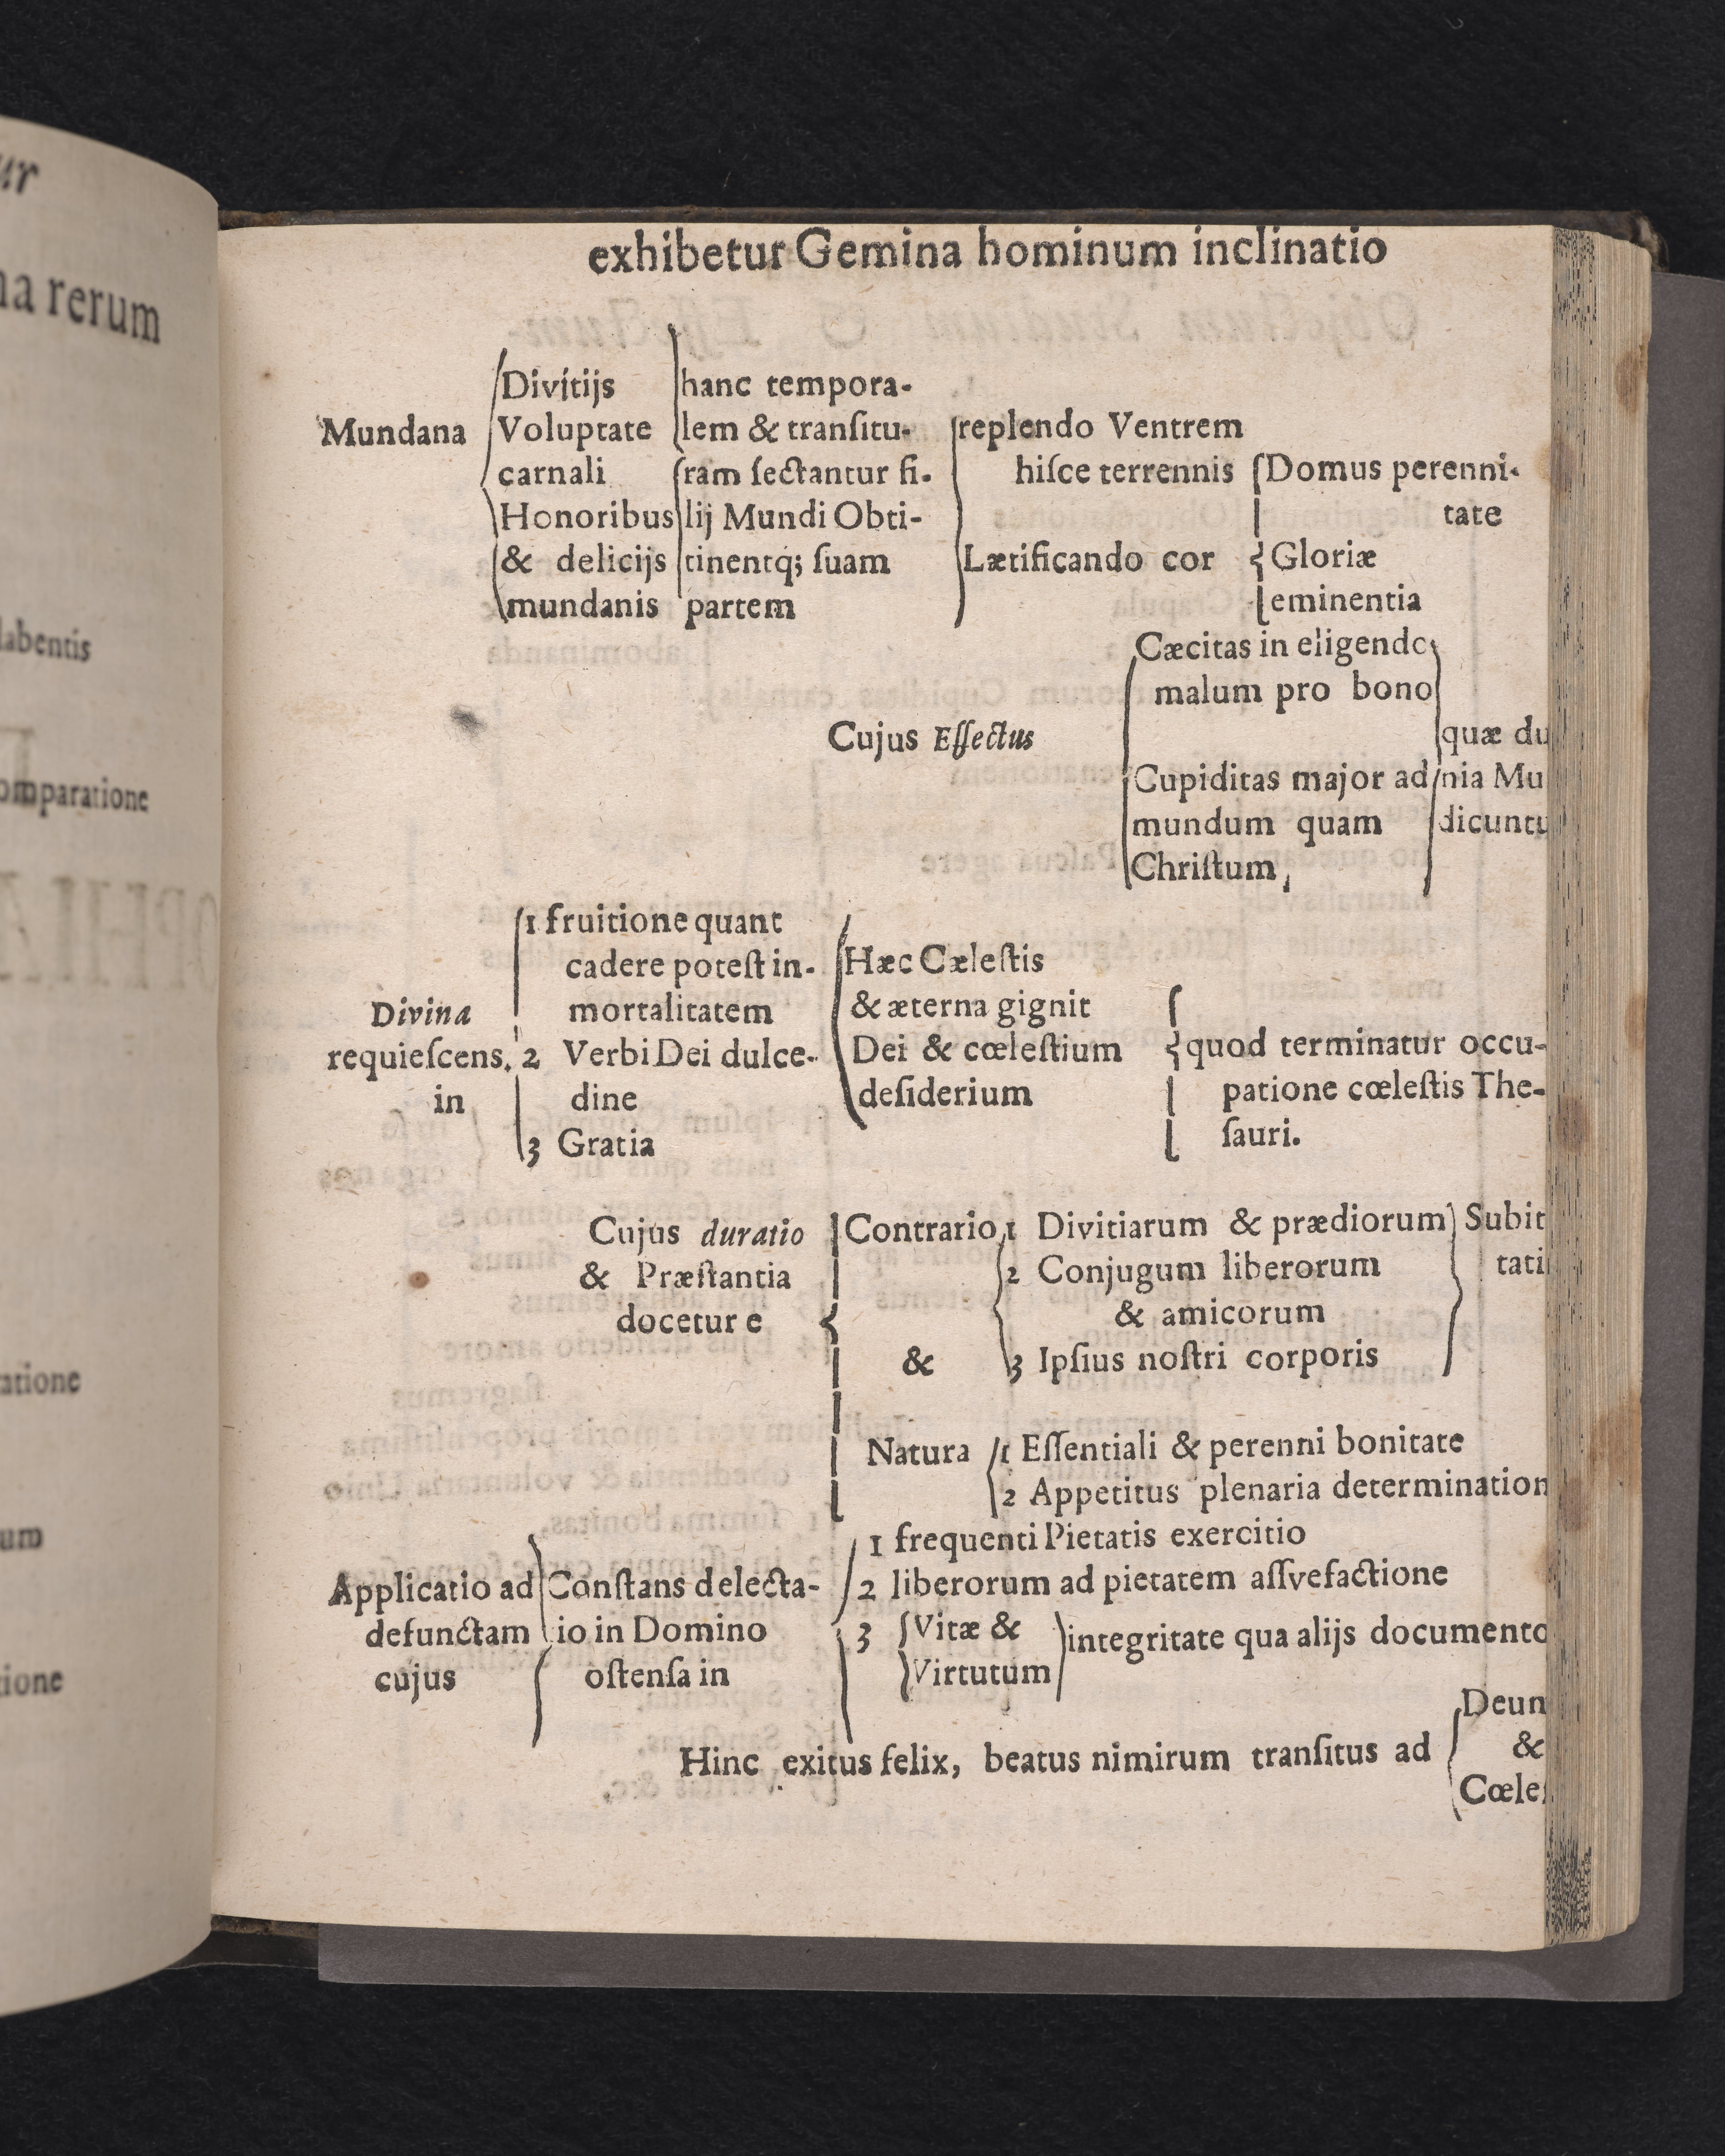 ur
na rerum
labentis
omparatione
atione
um
tione
exhibetur Gemina hominum inclinatio
Mundana
Divitijs
Voluptate
carnali
Honoribus
& delicijs
mundanis
hanc tempora-
lem & tranſitu-
ram ſectantur fi-
lij Mundi Obti-
tinentq; ſuam
partem
replendo Ventrem
hiſce terrennis
Lætificando cor
Domus perenni-
tate
Gloriæ
eminentia
Cujus Effectus
Cæcitas in eligendo
malum pro bono
Cupiditas major ad
mundum quam
Chriſtum,
quæ du
nia Mu
dicuntu
Divina
requieſcens.
in
1 fruitione quant
cadere poteſt in-
mortalitatem
2 Verbi Dei dulce-
dine
3 Gratia
Hæc Cæleſtis
& æterna gignit
Dei & cœleſtium
deſiderium
quod terminatur occu-
patione cœleſtis The-
ſauri.
Cujus duratio
& Præſtantia
docetur e
Contrario
&
1 Divitiarum & prædiorum
2 Conjugum liberorum
& amicorum
3 Ipſius noſtri corporis
Subit
tati
Natura
1 Eſſentiali & perenni bonitate
2 Appetitus plenaria determination
Applicatio ad
defunctam
cujus
Conſtans delecta-
io in Domino
oſtenſa in
1 frequenti Pietatis exercitio
2 liberorum ad pietatem aſſvefactione
3 Vitæ &
Virtutum
integritate qua alijs documento
Hinc exitus felix, beatus nimirum tranſitus ad
Deun
&
Cœleſ